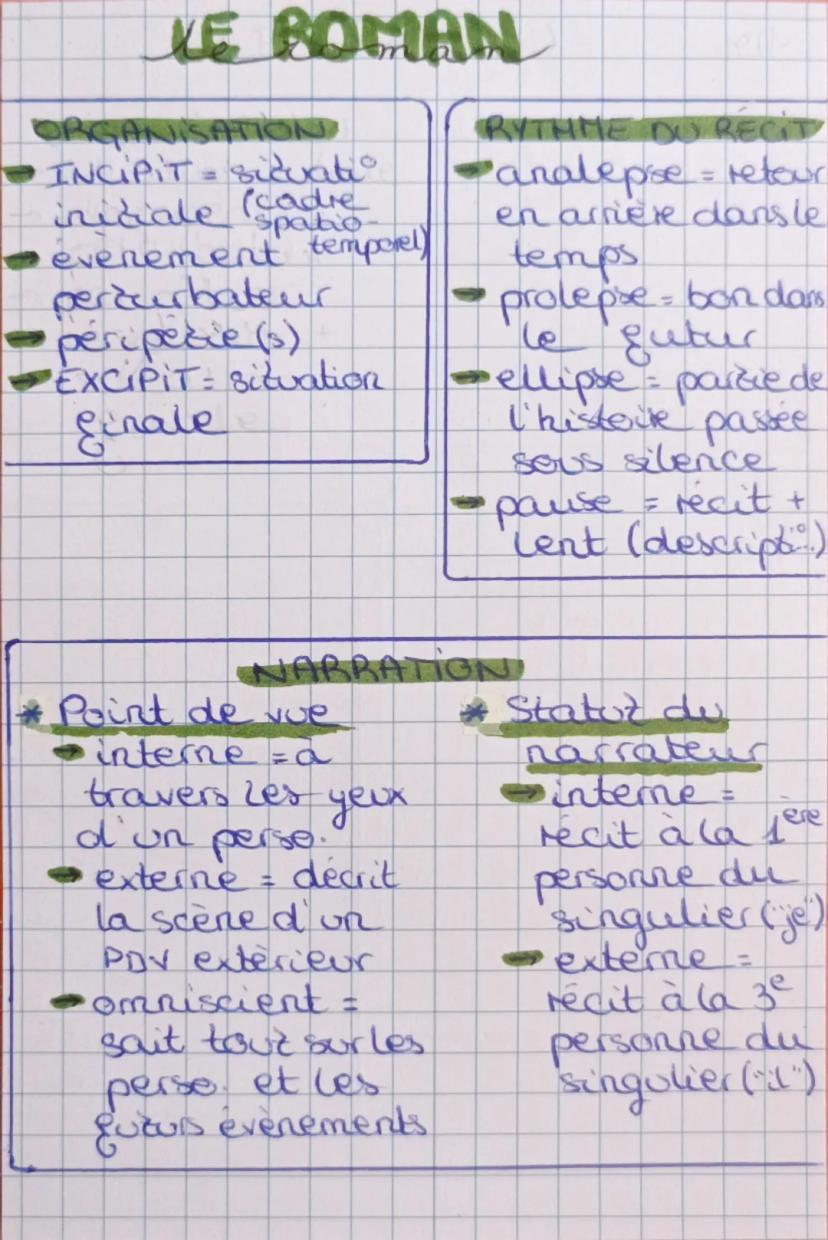 LE ROMAN
le roman
ORGANISATION
→ INCIPIT = situati°
initiale (cadre
spatio-
temporel)
→ évènement
perturbateur
→ péripétie(s)
→ EXCIPIT = situation
finale
RYTHME DU RÉCIT
→ analepse = retour
en arrière dans le
temps
→ prolepse = bon dans
le futur
→ ellipse = partie de
l'histoire passée
sous silence
→ pause = récit +
lent (descripti°...)
NARRATION
* Point de vue
→ interne = à
travers les yeux
d'un perso.
→ externe = décrit
la scène d'un
PDV extérieur
→ omniscient =
sait tout sur les
perso. et les
futurs évènements
* Statut du
narrateur
→ interne =
récit à la 1ère
personne du
singulier ("je")
→ externe =
récit à la 3e
personne du
singulier ("il")